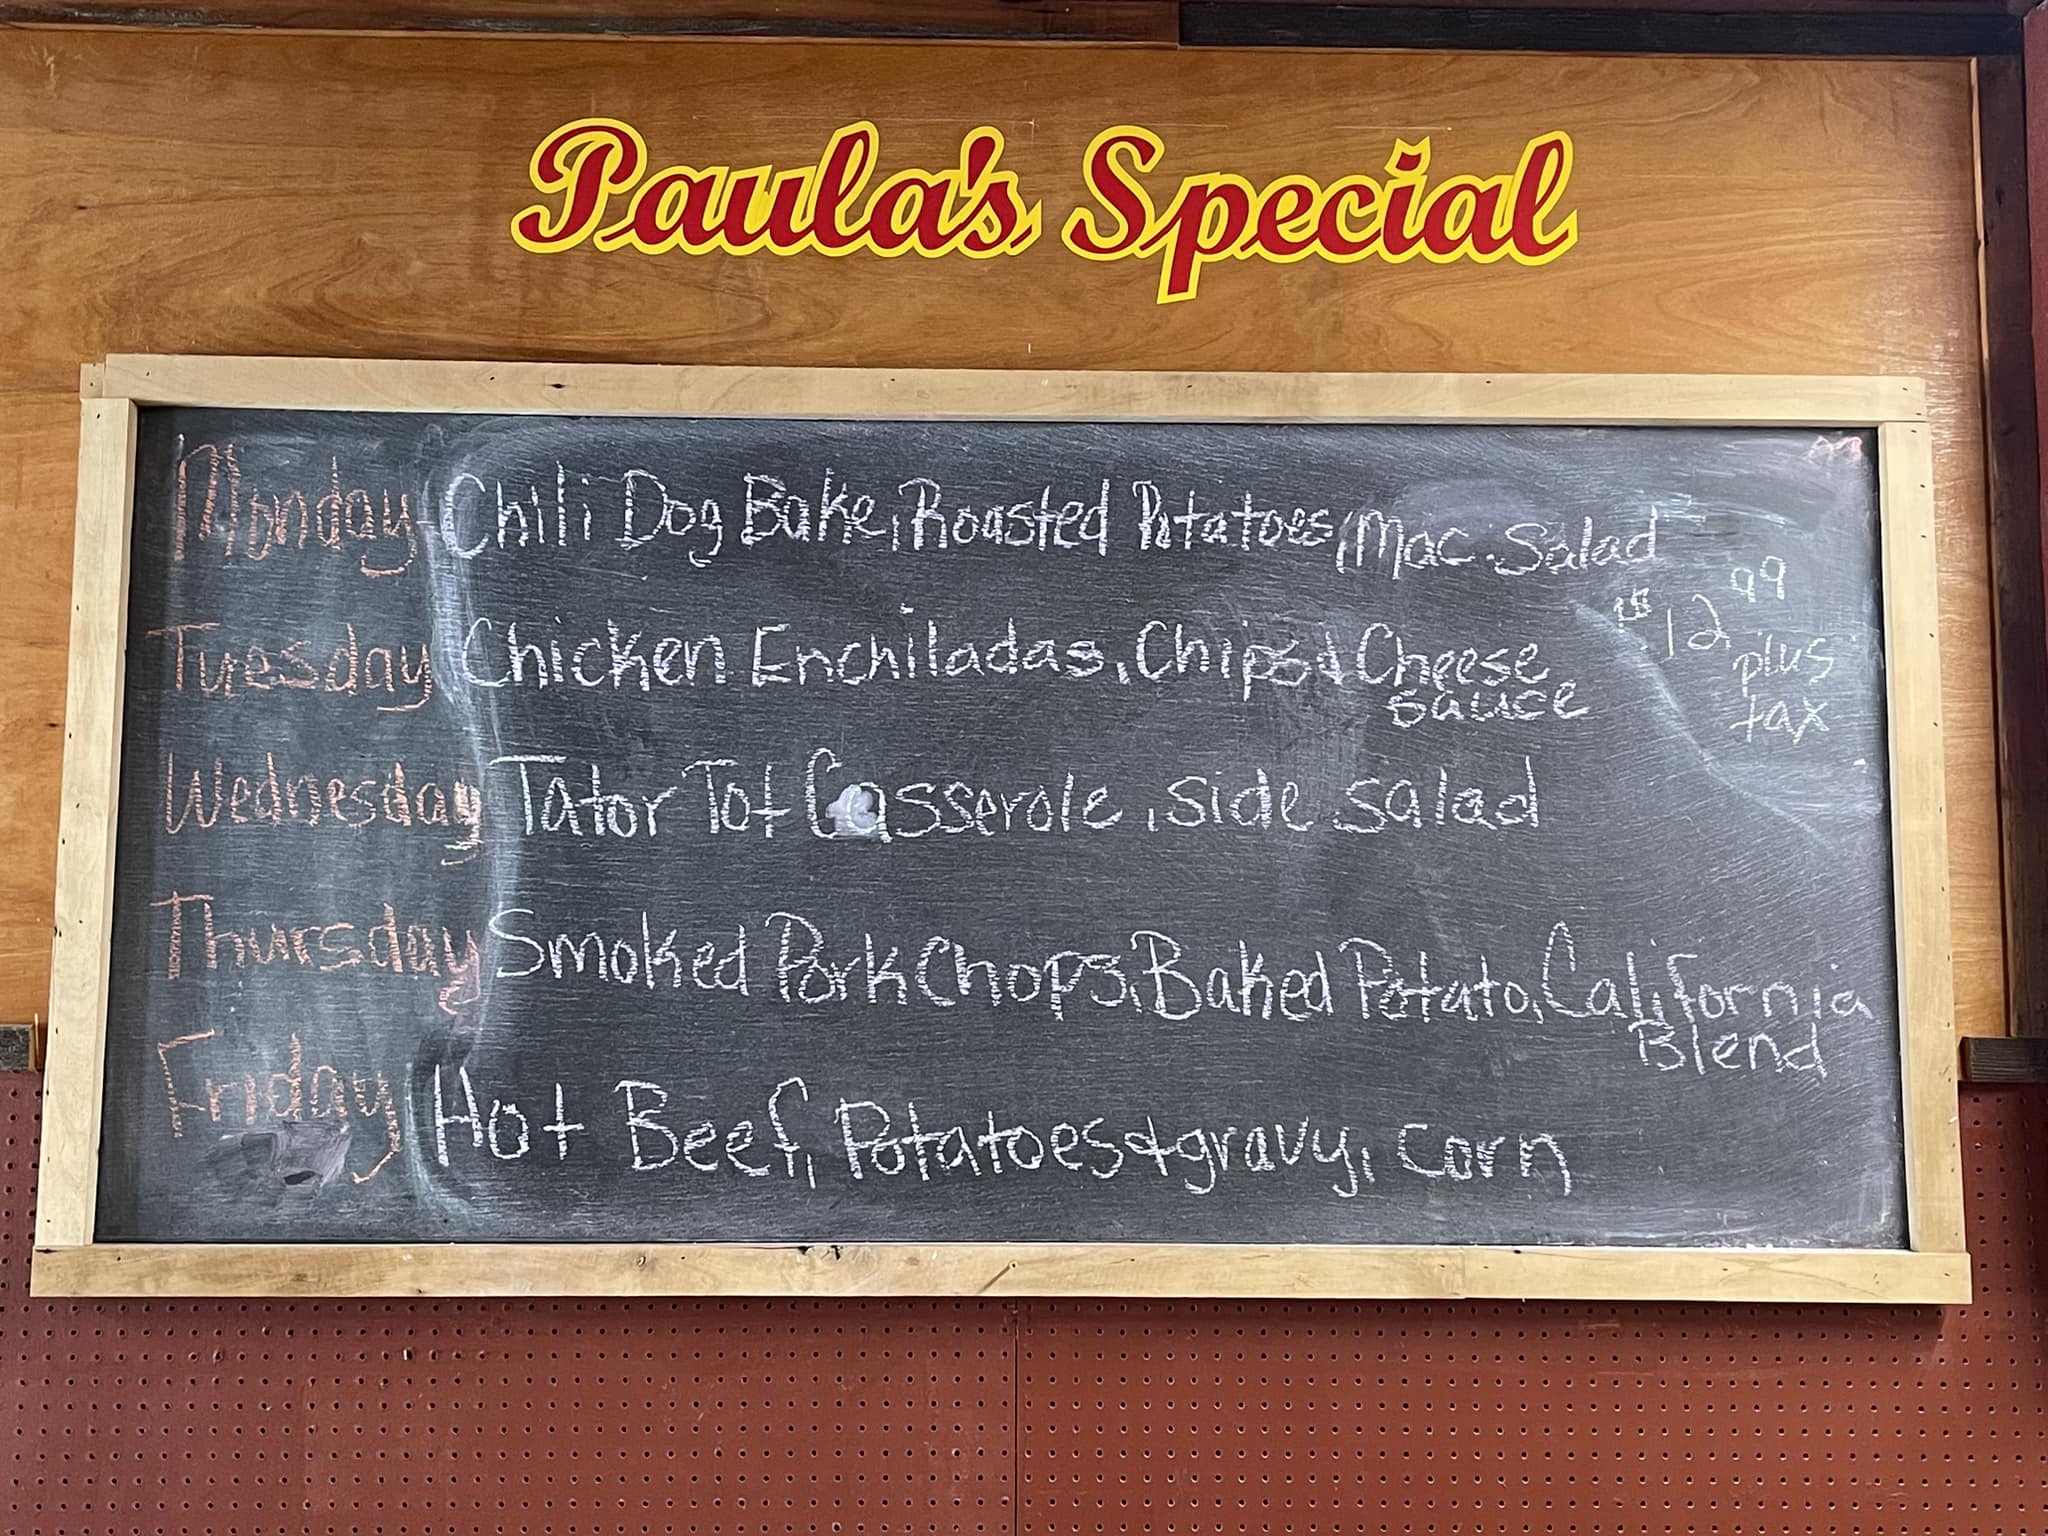 Paula's Special
Monday Chili Dog Bake, Roasted Potatoes, Mac Salad
$12.99
plus
tax
Tuesday Chicken Enchiladas, Chips & Cheese
sauce
Wednesday Tator Tot Casserole, side salad
Thursday Smoked Pork Chops, Baked Potato, California
Blend
Friday Hot Beef, Potatoes & gravy, corn